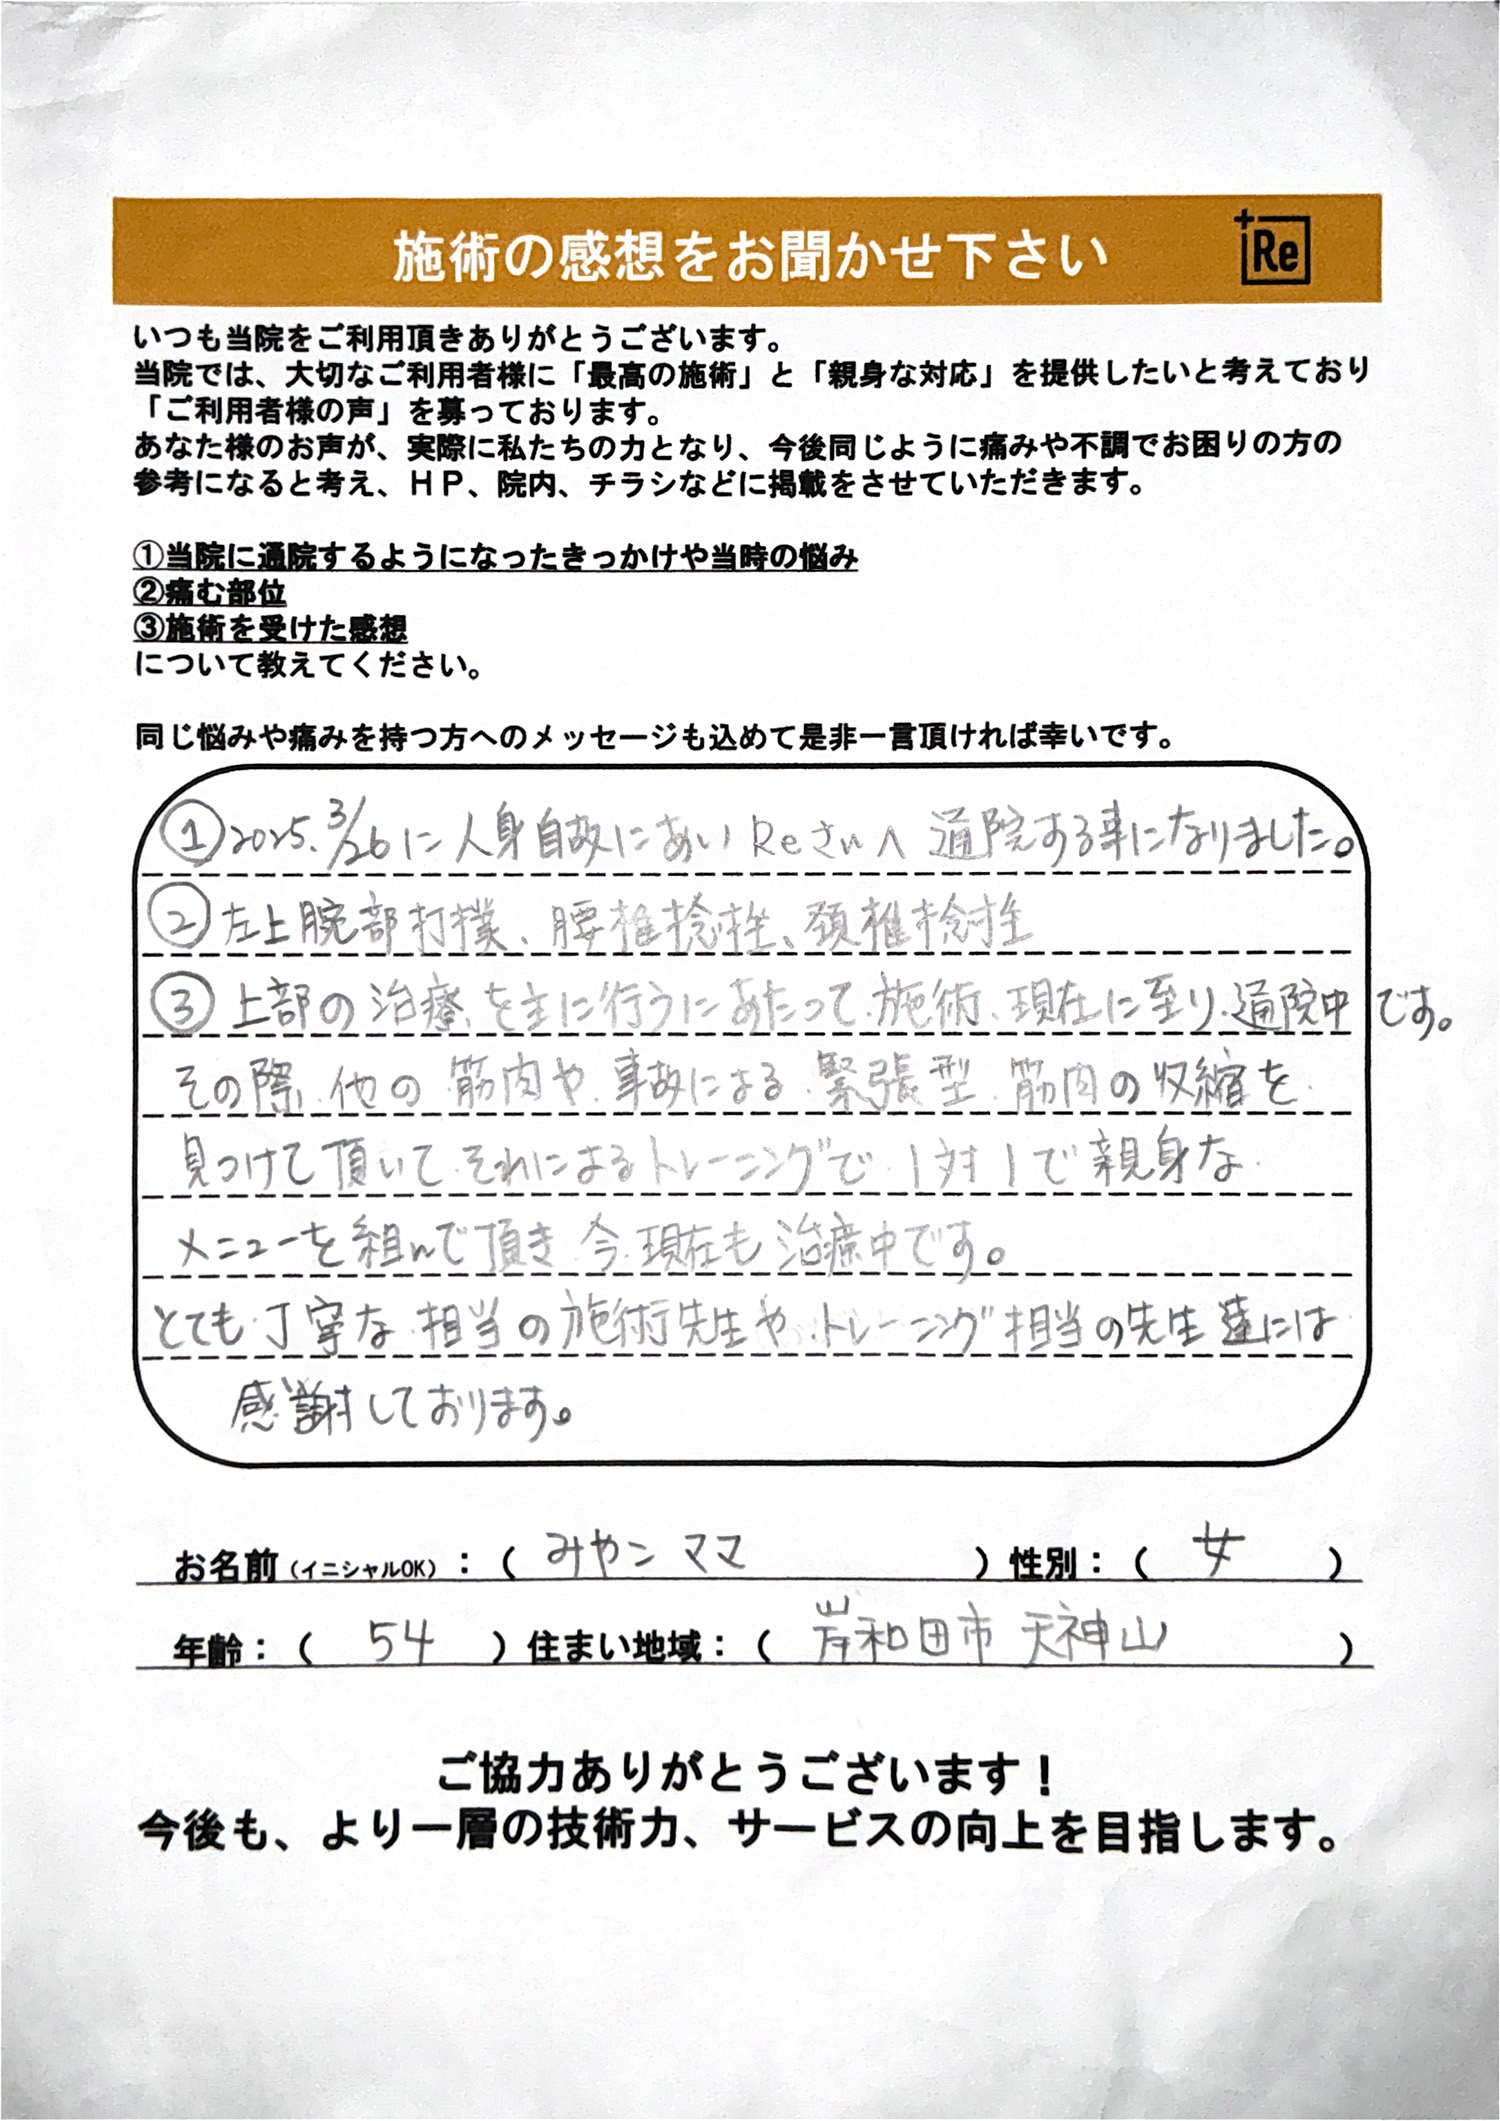 施術の感想をお聞かせ下さい
Re
いつも当院をご利用頂きありがとうございます。
当院では、大切なご利用者様に「最高の施術」と「親身な対応」を提供したいと考えており
「ご利用者様の声」を募っております。
あなた様のお声が、実際に私たちの力となり、今後同じように痛みや不調でお困りの方の
参考になると考え、HP、院内、チラシなどに掲載をさせていただきます。
①当院に通院するようになったきっかけや当時の悩み
②痛む部位
③施術を受けた感想
について教えてください。
同じ悩みや痛みを持つ方へのメッセージも込めて是非一言頂ければ幸いです。
① 2025. 3/26 に人身自故にあい Reさんへ 通院する事になりました。
② 左上腕部打撲、腰椎捻挫、頚椎捻挫
③ 上部の治療を主に行うにあたって施術、現在に至り通院中です。
その際、他の筋肉や事故による緊張型筋肉の収縮を
見つけて頂いてそれによるトレーニングで1対1で親身な
メニューを組んで頂き今現在も治療中です。
とても丁寧な担当の施術先生やトレーニング担当の先生達には
感謝しております。
お名前(イニシャルOK):( みやこママ ) 性別:( 女 )
年齢:( 54 ) 住まい地域:( 岸和田市 天神山 )
ご協力ありがとうございます!
今後も、より一層の技術力、サービスの向上を目指します。